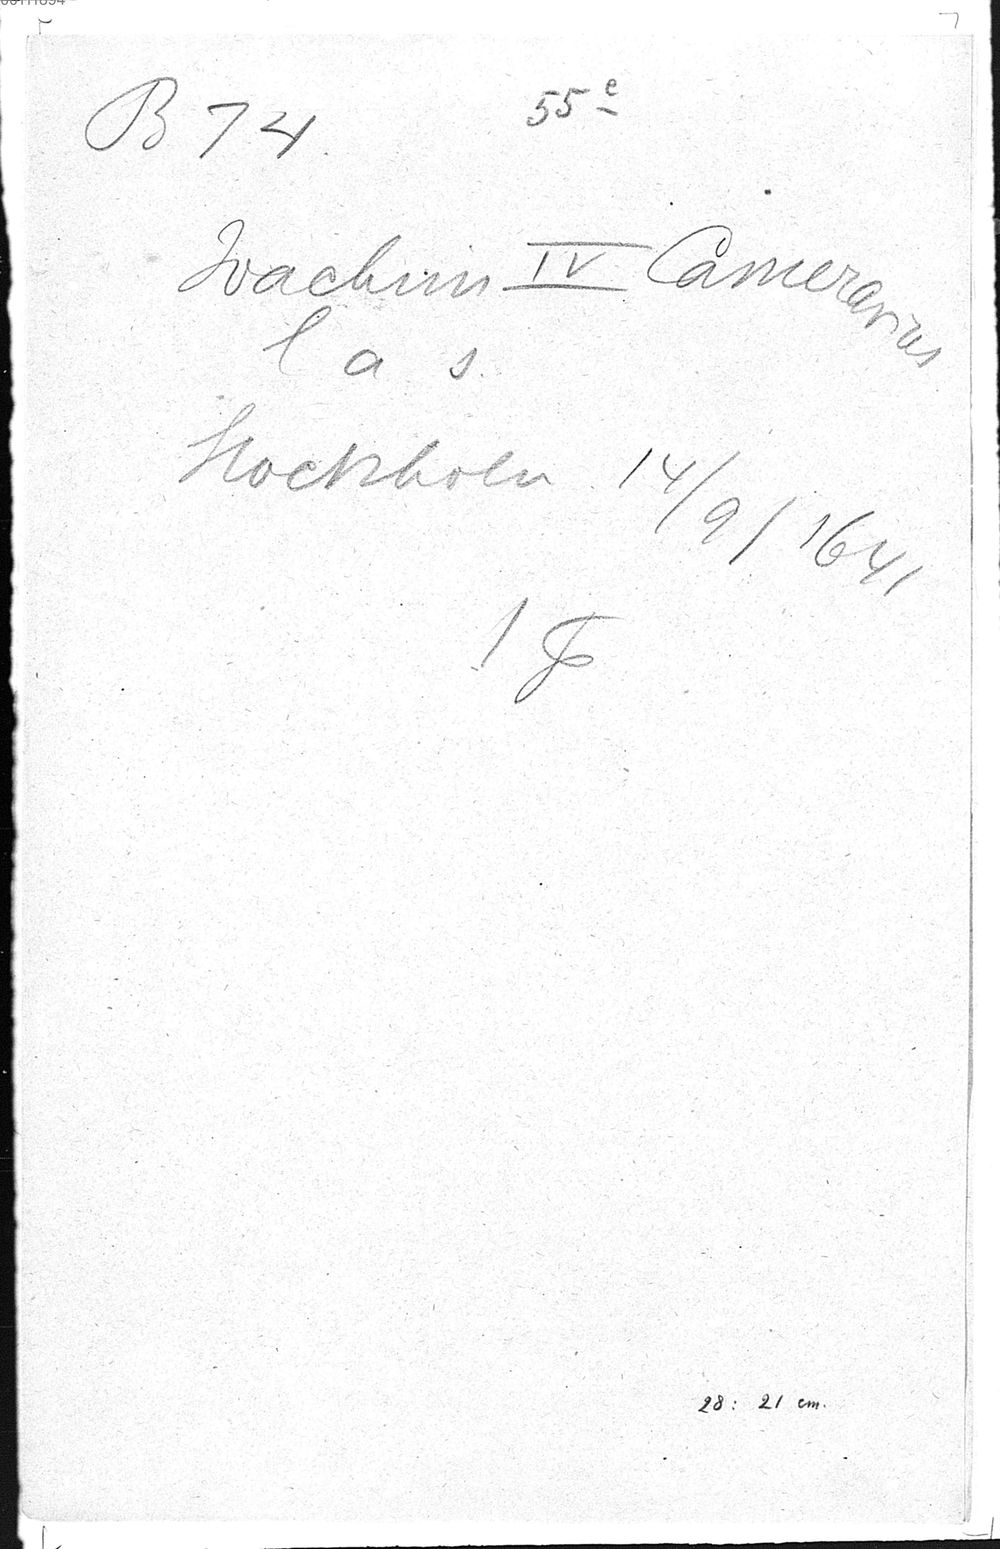 B 74. 55 e
Joachim IV Camerarius
l a s.
Stockholm 14/9/1641
1 f
28: 21 cm.